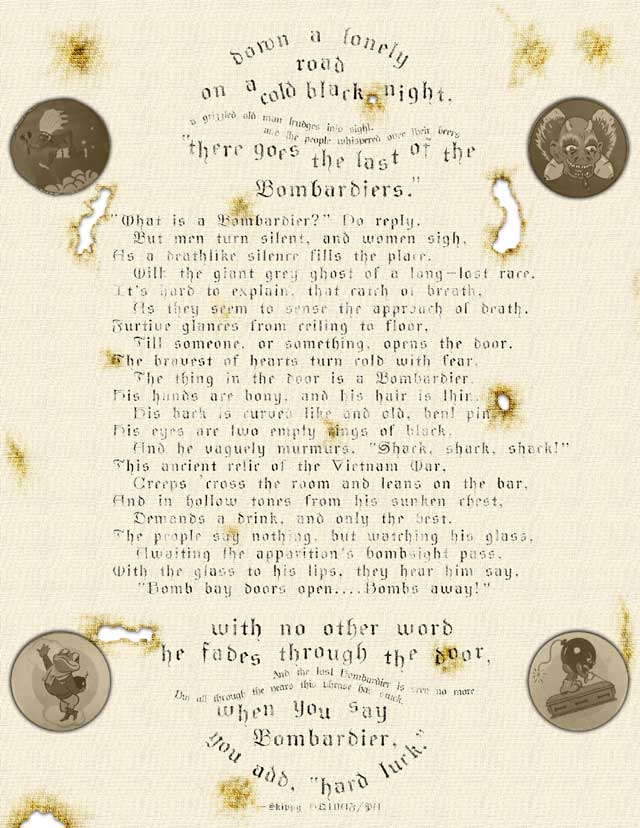 down a lonely
road
on a cold black night,
a grizzled old man trudges into sight.
and the people whispered over their beers
"there goes the last of the
Bombardiers."
"What is a Bombardier?" No reply.
But men turn silent, and women sigh,
As a deathlike silence fills the place.
With the giant grey ghost of a long-lost race.
It's hard to explain, that catch of breath,
As they seem to sense the approach of death.
Furtive glances from ceiling to floor,
Till someone, or something, opens the door.
The bravest of hearts turn cold with fear,
The thing in the door is a Bombardier.
His hands are bony, and his hair is thin,
His back is curved like and old, bent pin.
His eyes are two empty rings of black,
And he vaguely murmurs, "Shack, shack, shack!"
This ancient relic of the Vietnam War,
Creeps 'cross the room and leans on the bar,
And in hollow tones from his sunken chest,
Demands a drink, and only the best.
The people say nothing, but watching his glass,
Awaiting the apparition's bombsight pass,
With the glass to his lips, they hear him say,
"Bomb bay doors open....Bombs away!"
with no other word
he fades through the door,
And the last Bombardier is seen no more
But all through the years this phrase has stuck,
when you say
Bombardier,
you add, "hard luck."
-Skippy